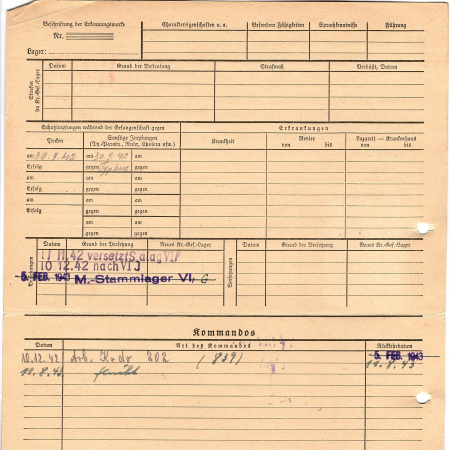 Beschriftung der Erkennungsmarke
Nr.
Lager:
Charaktereigenschaften u. a.
Besondere Fähigkeiten
Sprachkenntnisse
Führung
Strafen im Kr.-Gef.-Lager
Datum
Grund der Bestrafung
Strafmaß
Verbüßt, Datum
Schutzimpfungen während der Gefangenschaft gegen
Erkrankungen
Pocken
Sonstige Impfungen
(Ty.-Paraty., Ruhr, Cholera usw.)
Krankheit
Revier
von bis
Lazarett — Krankenhaus
von bis
am 30.9.42 am 30.9.42 am
Erfolg gegen Typhus gegen
am am am
Erfolg gegen gegen
am am am
Erfolg gegen gegen
am am
gegen gegen
Versetzungen
Datum
Grund der Versetzung
Neues Kr.-Gef.-Lager
Versetzungen
Datum
Grund der Versetzung
Neues Kr.-Gef.-Lager
11 11.42 versetzt Stalag VI F
10 12.42 nach VI J
5. FEB. 1943 M.-Stammlager VI, G
Kommandos
Datum
Art des Kommandos
Rückkehrdatum
10.12.42 Arb. Kodo 202 (839) 5. FEB. 1943
11.8.43